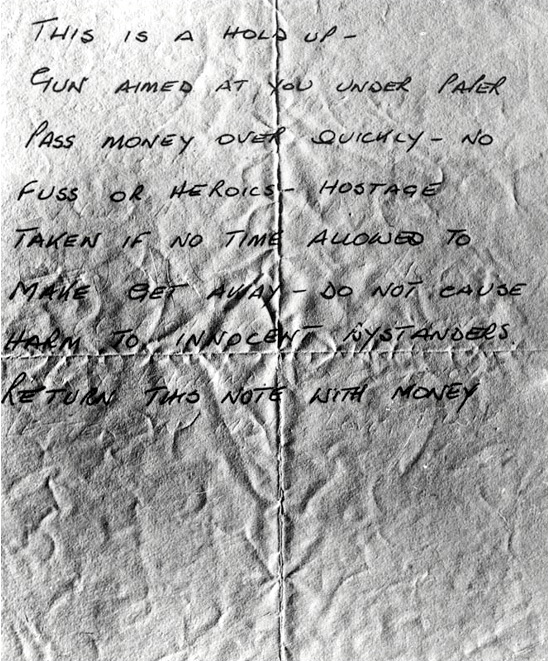 THIS IS A HOLD UP -
GUN AIMED AT YOU UNDER PAPER
PASS MONEY OVER QUICKLY - NO
FUSS OR HEROICS - HOSTAGE
TAKEN IF NO TIME ALLOWED TO
MAKE GET AWAY - DO NOT CAUSE
HARM TO INNOCENT BYSTANDERS.
RETURN THIS NOTE WITH MONEY